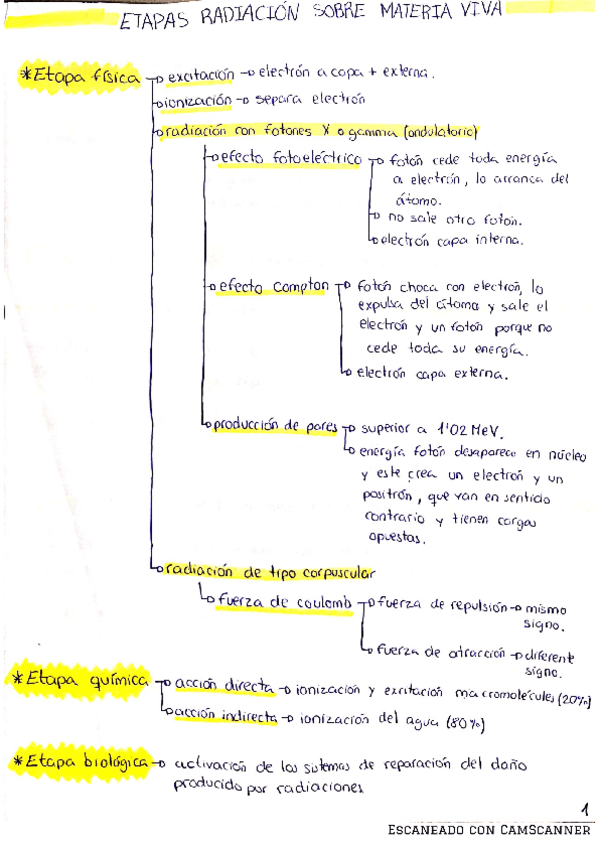 ETAPAS RADIACIÓN SOBRE MATERIA VIVA
*Etapa física → excitación → electrón a capa + externa.
→ ionización → separa electrón
→ radiación con fotones X o gamma (ondulatorio)
→ efecto fotoeléctrico → fotón cede toda energía
a electrón, lo arranca del
átomo.
→ no sale otro fotón.
→ electrón capa interna.
→ efecto compton → fotón choca con electrón, lo
expulsa del átomo y sale el
electrón y un fotón porque no
cede toda su energía.
→ electrón capa externa.
→ producción de pares → superior a 1'02 MeV.
→ energía fotón desaparece en núcleo
y este crea un electrón y un
positrón, que van en sentido
contrario y tienen cargas
opuestas.
→ radiación de tipo corpuscular
→ fuerza de coulomb → fuerza de repulsión → mismo
signo.
→ fuerza de atracción → diferente
signo.
*Etapa química → acción directa → ionización y excitación macromolécules (20%)
→ acción indirecta → ionización del agua (80%)
*Etapa biológica → activación de los sistemas de reparación del daño
producido por radiaciones
1
ESCANEADO CON CAMSCANNER